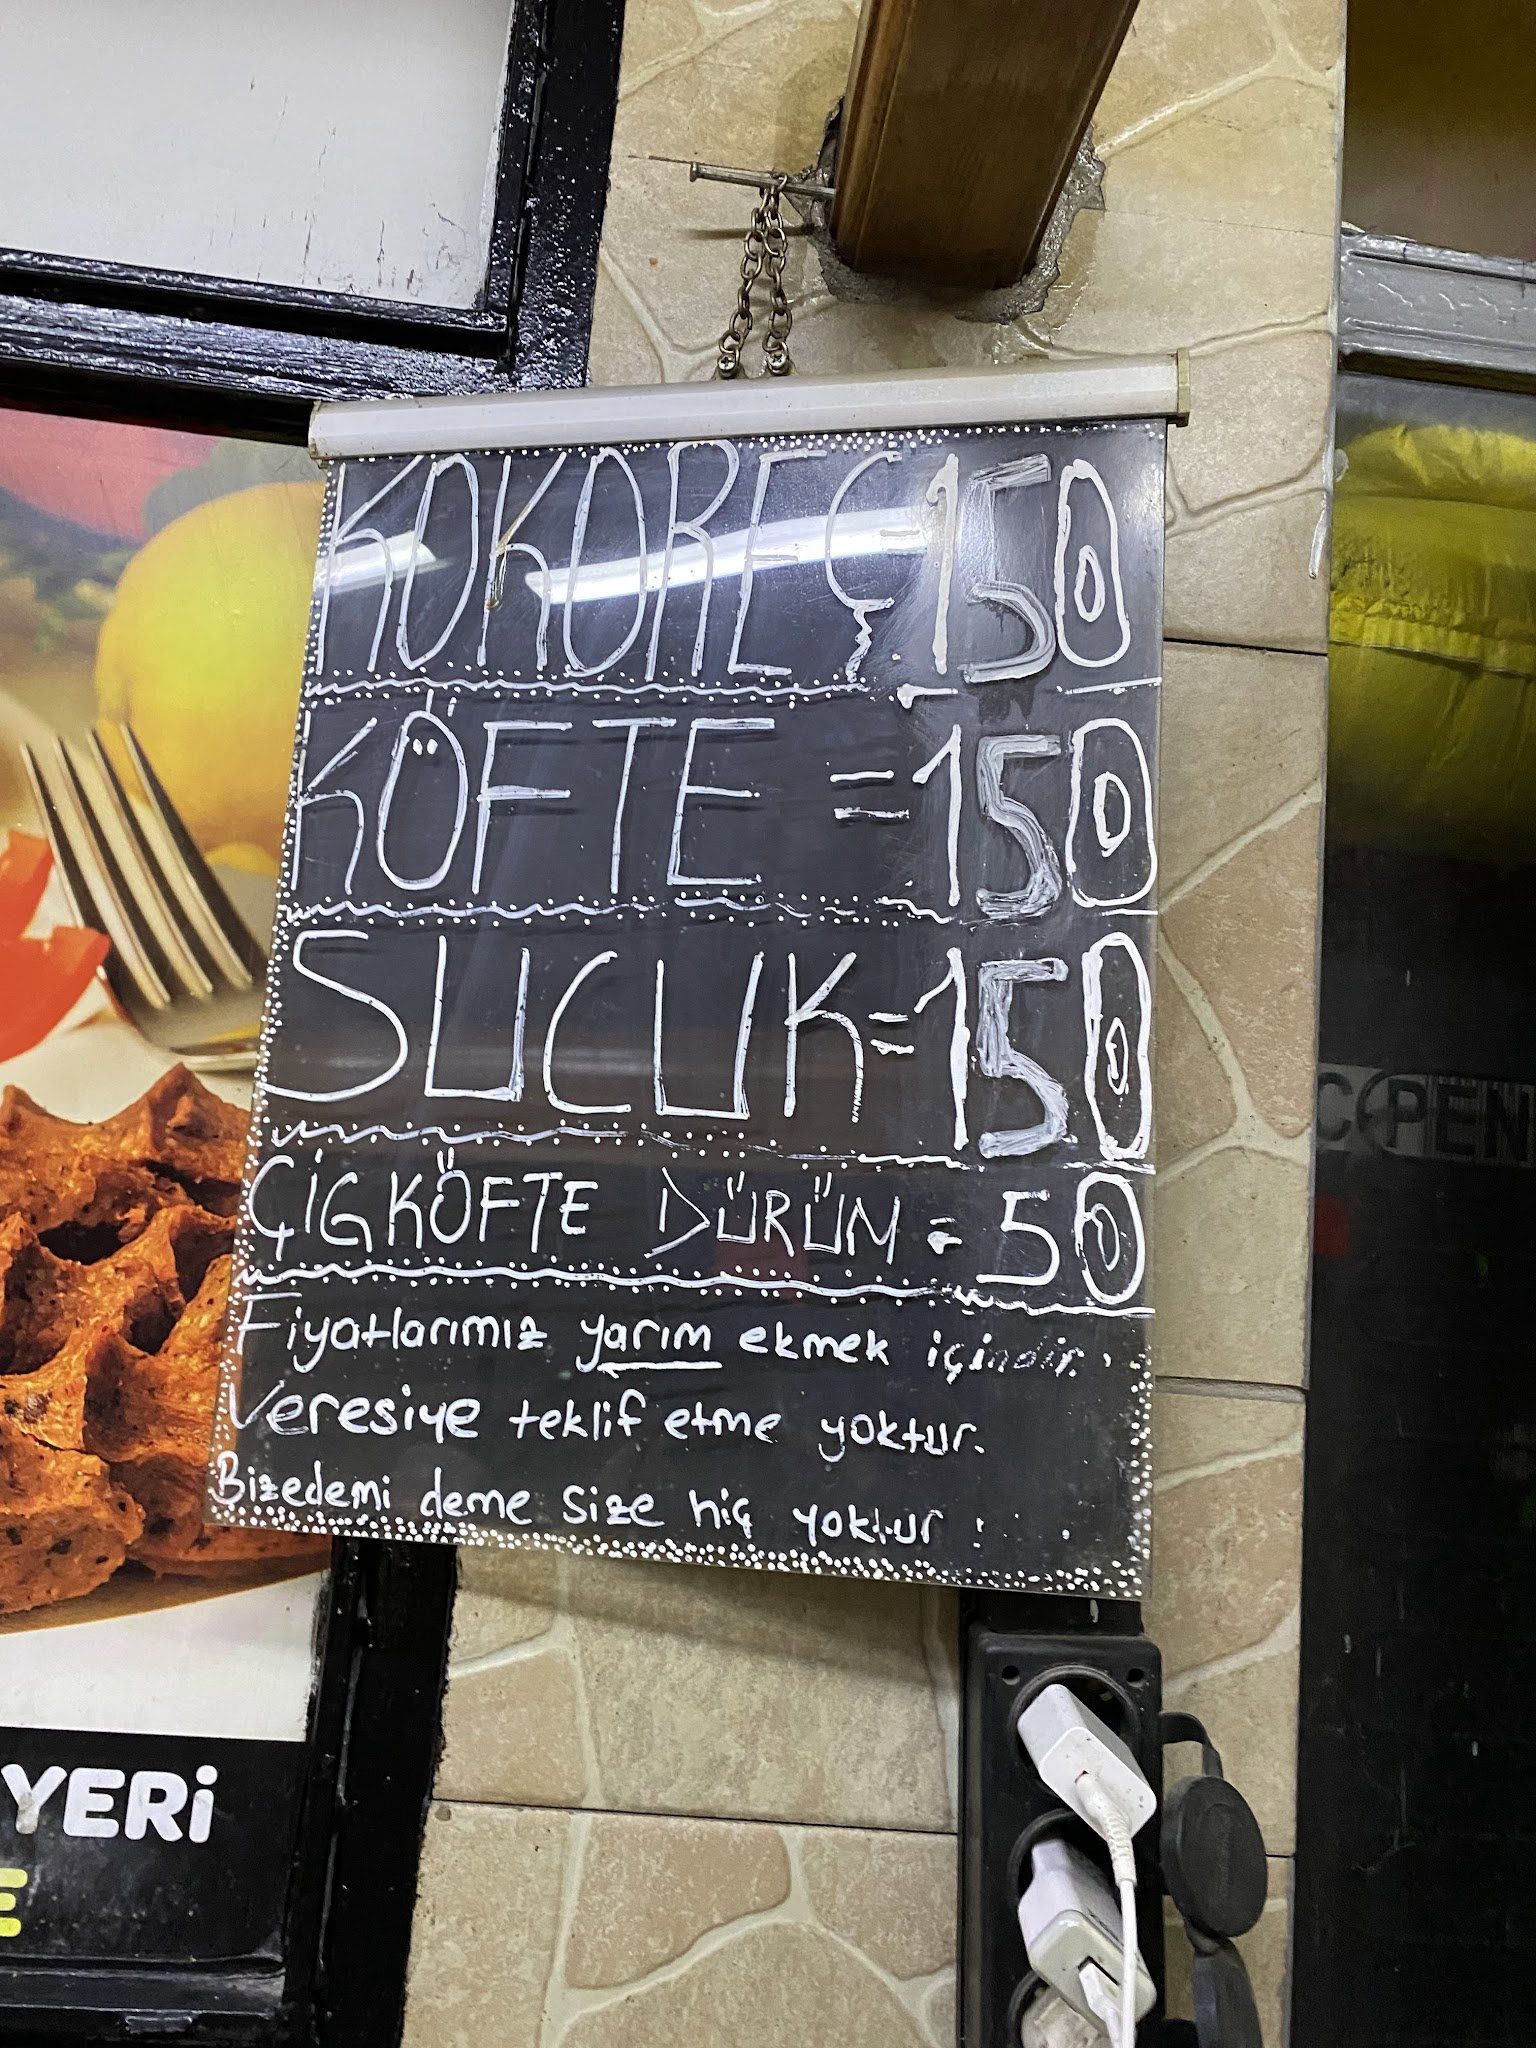 KOKOREÇ=150
KÖFTE =150
SUCUK=150
ÇİGKÖFTE DÜRÜM = 50
Fiyatlarımız yarım ekmek içindir.
Veresiye teklif etme yoktur.
Bizedemi deme size hiç yoktur !
YERİ
E
PEN